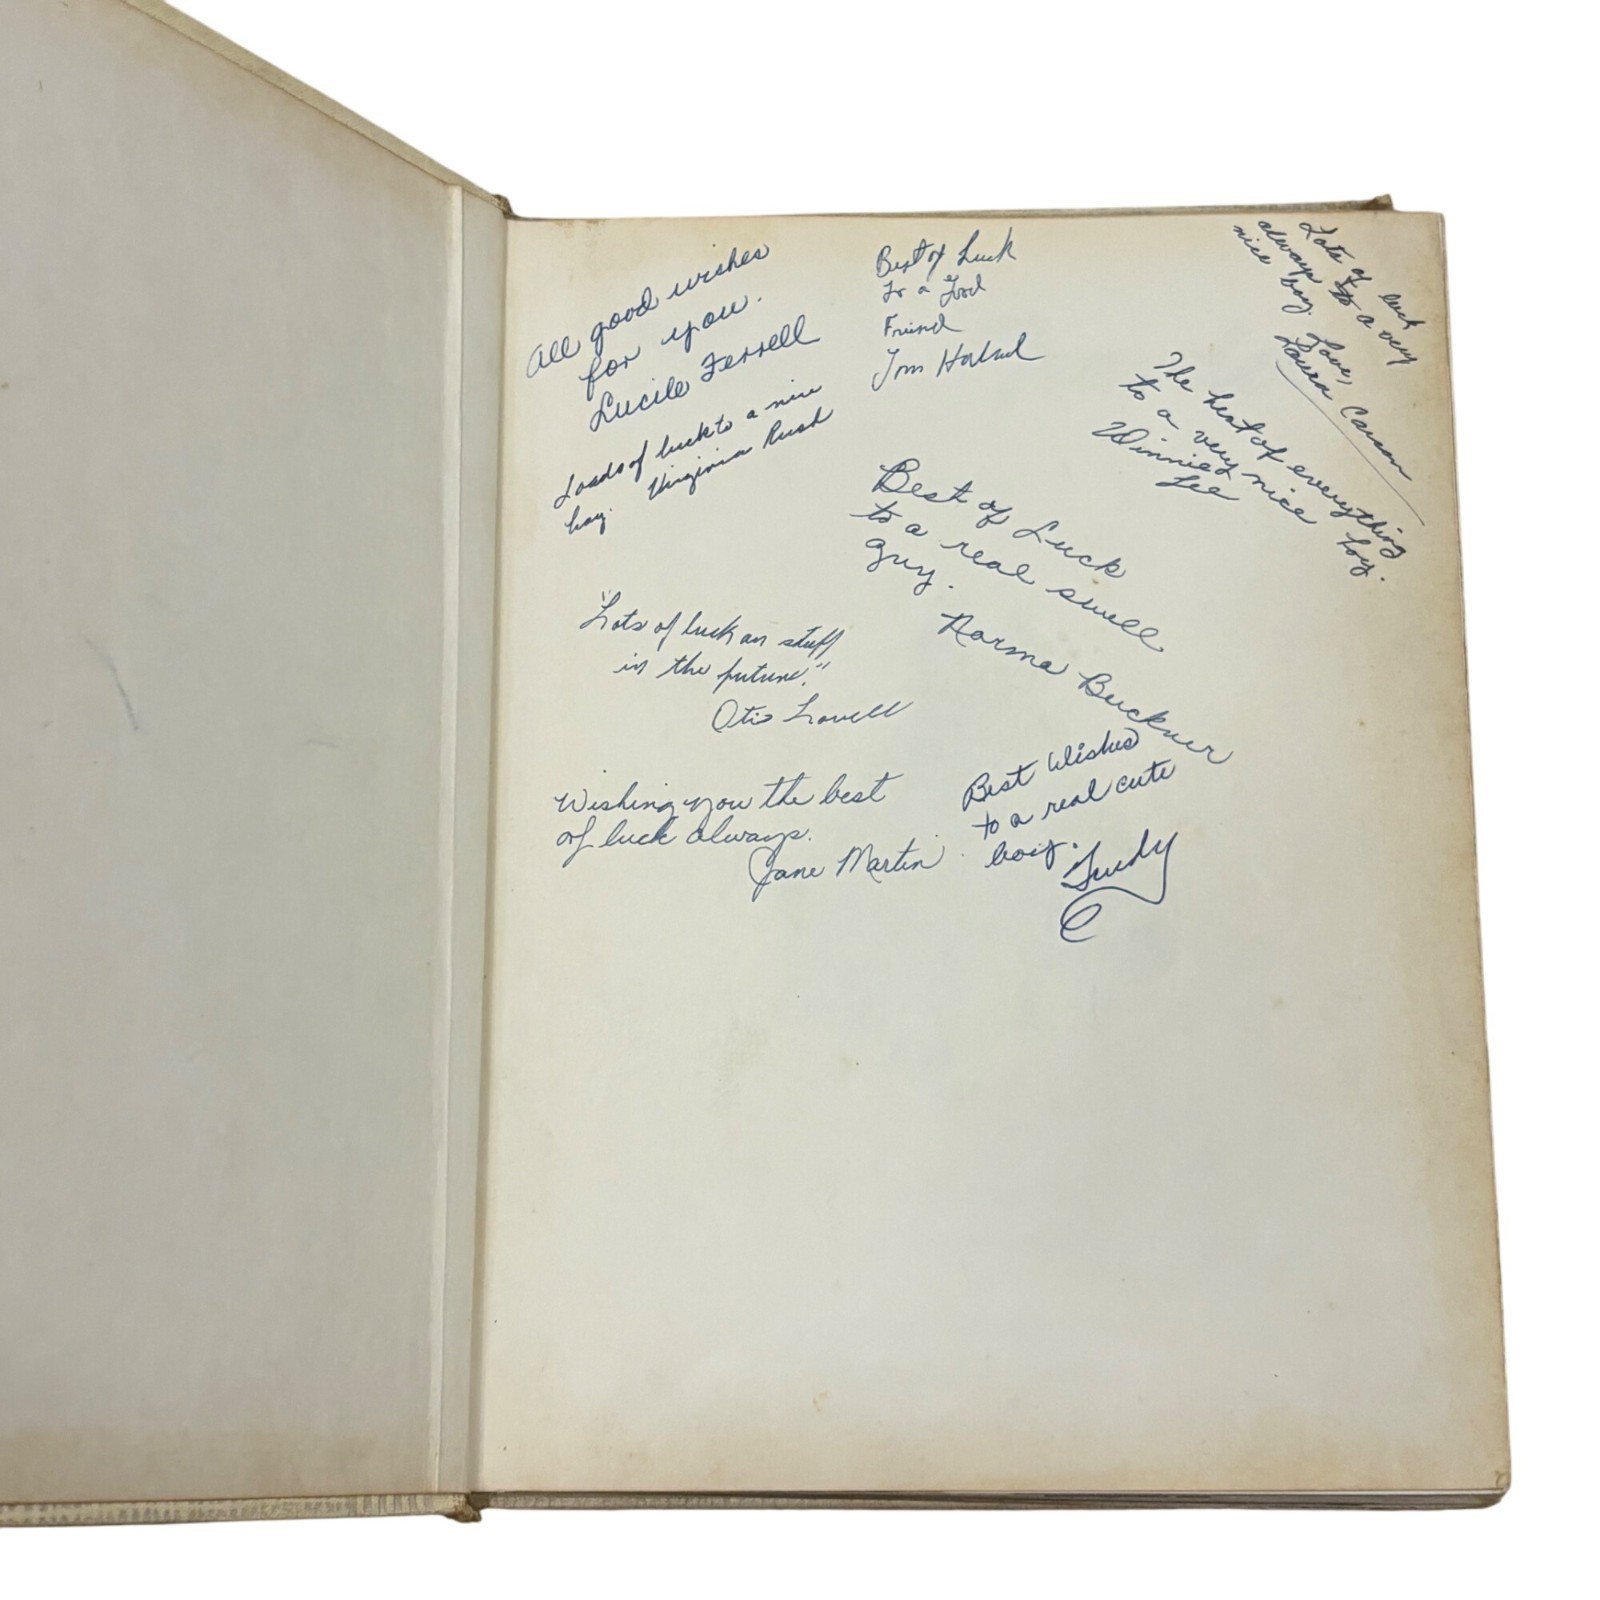 All good wishes
for you.
Lucile Ferrell
Loads of luck to a nice
boy. Virginia Rush
Best of Luck
To a Good
Friend
Tom
Lots of luck
always to a very
nice boy. Love,
Laura Carson
The best of everything
to a very nice boy.
Winnie
Lee
Best of Luck
to a real swell
guy.
Norma Buckner
"Lots of luck an stuff
in the future."
Otis Lovell
Wishing you the best
of luck always.
Jane Martin
Best Wishes
to a real cute
boy.